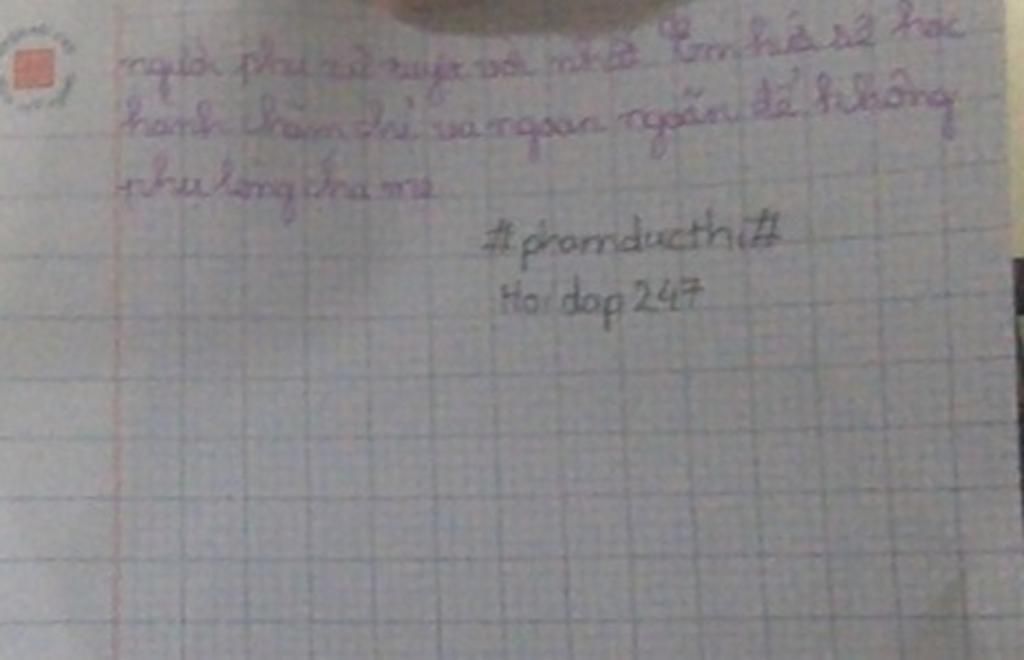 người phụ nữ tuyệt vời nhất Em hứa sẽ học
hành chăm chỉ và ngoan ngoãn để không
phụ lòng cha mẹ
#phamducthi#
Hoidap247